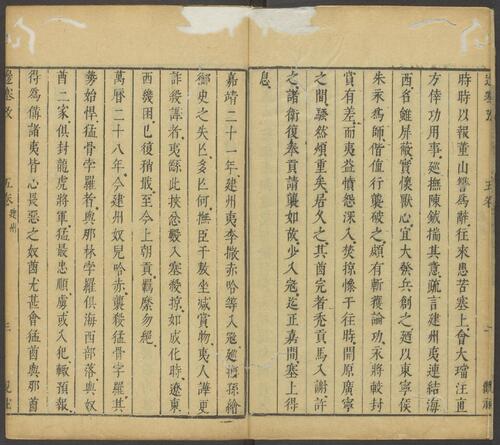 時時以報董山讐爲辭往來患苦塞上會大璫汪直
方倖功用事廵撫陳鉞揣其意䟽言建州夷連結海
西名雖屏蔽實懷獸心宜大發兵創之廼以東寧侯
朱永爲師偕直行襲破之頗有斬獲論功永將較封
賞有差而夷益憤怨深入焚掠慘于往時開原廣寧
之間騷然煩重矣居久之其酋完者禿貢馬入謝許
之諸衛復奉貢請襲如故少入寇迄正嘉間塞上得
息
嘉靖二十一年建州夷李撒赤哈等入寇廵撫孫繪
禦史之失亡多亡何撫臣于敖坐减賞物夷人譁更
詐殺譁者夷繇此挾忿數入塞殺掠如成化時遼東
西幾困已後稍戢至今上朝貢羈縻勿絕
萬曆二十八年今建州奴兒哈赤襲殺猛骨孛羅其
勢始悍猛骨孛羅者與那林孛羅俱海西部落與奴
酋二家俱封龍虎將軍猛最忠順虜或入犯輒預報
得爲備諸夷皆心畏惡之奴酋尤甚會猛酋與那酋
邊塞攷 五卷 建州 三